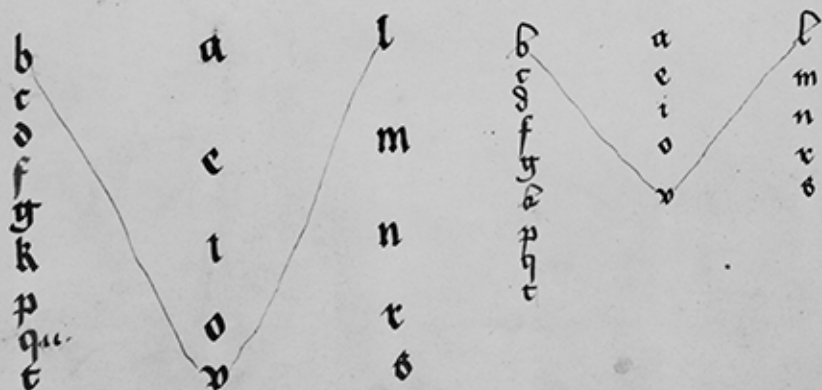 b
c
d
f
g
k
p
qu.
t
a
e
i
o
v
l
m
n
r
s
b
c
d
f
g
k
p
q
t
a
e
i
o
v
l
m
n
r
s